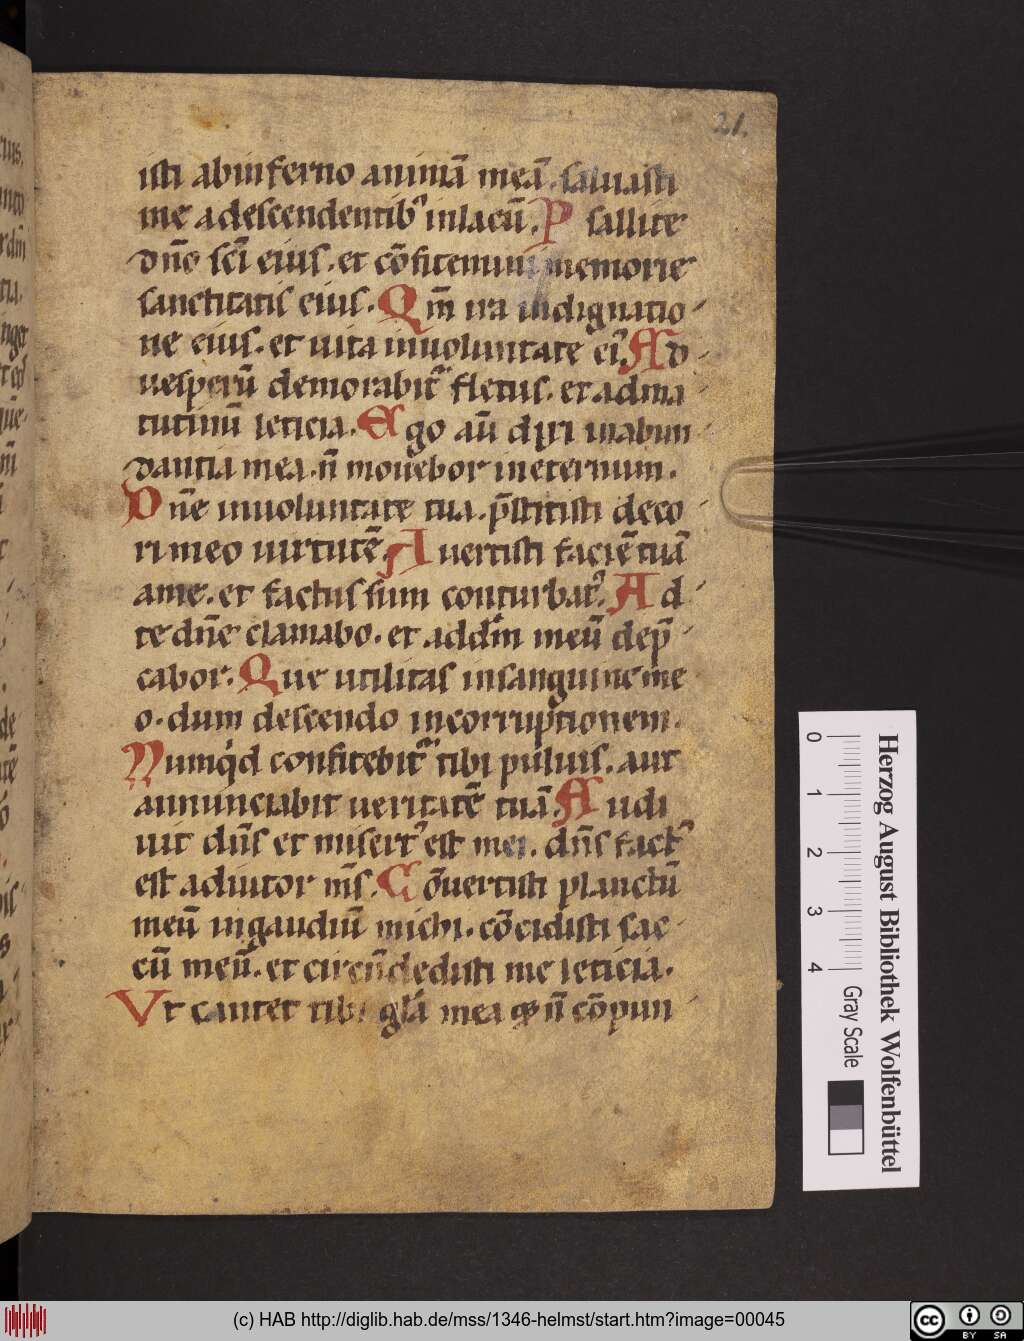 21.
isti abinferno animā meā. saluasti
me adescendentibꝰ inlacū. Psallite
dn̄o sc̄i eius. et cōfitemini memorie
sanctitatis eius. Qm̄ ira indignatio
ne eius. et uita inuoluntate eiꝰ. Ad
uesperū demorabit᷑ fletus. et adma
tutinū leticia. Ego aū dixi inabun
dantia mea. n̄ mouebor ineternum.
Dn̄e inuoluntate tua. p̄stitisti deco
ri meo uirtutē. Auertisti faciē tuā
ame. et factus sum conturbat᷑. Ad
te dn̄e clamabo. et addm̄ meū dep̄
cabor. Que utilitas insanguine me
o. dum descendo incorruptionem.
Numqͥd confitebit᷑ tibi puluis. aut
annunciabit ueritatē tuā. Audi
uit dn̄s et misert᷑ est mei. dn̄s factꝰ
est adiutor m̄s. Cōuertisti planctū
meū ingaudiū michi. cōcidisti sac
cū meū. et circūdedisti me leticia.
Vt cantet tibi gl̄a mea ꝙ n̄ cōpun
Herzog August Bibliothek Wolfenbüttel
0 1 2 3 4 Gray Scale
(c) HAB http://diglib.hab.de/mss/1346-helmst/start.htm?image=00045
cc BY SA